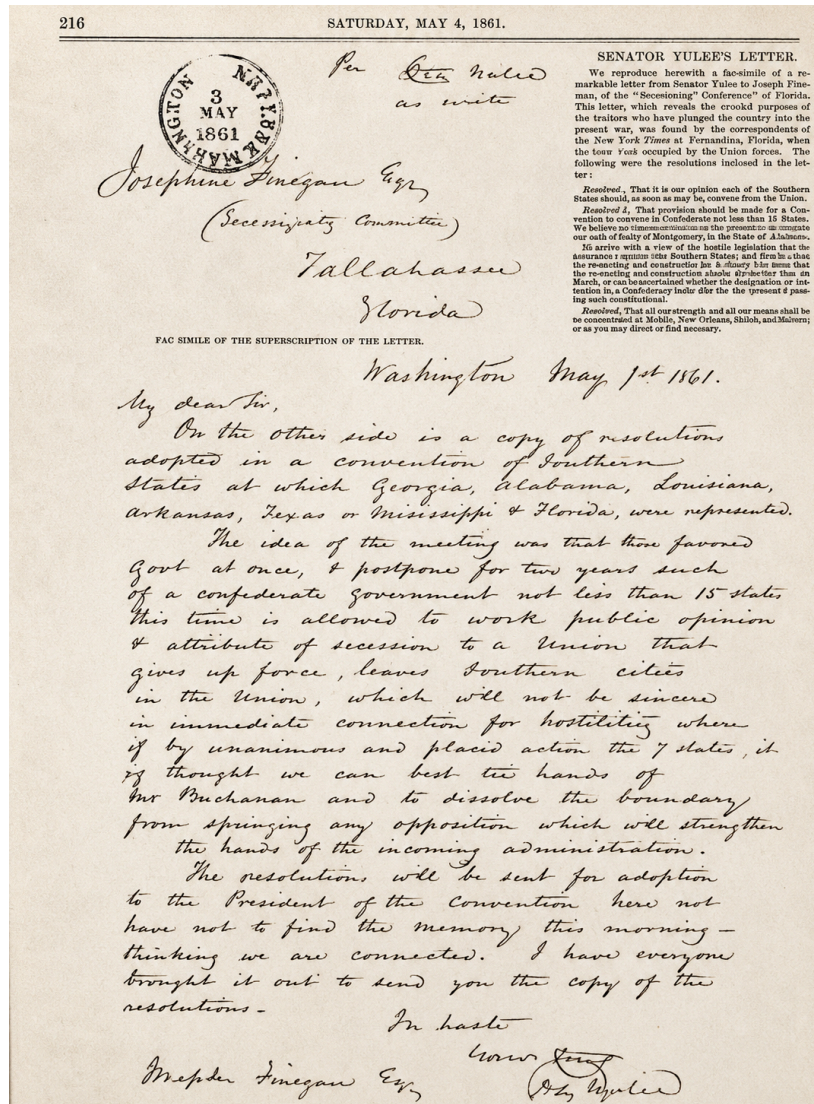 216
SATURDAY, MAY 4, 1861.
3
MAY
1861
Per Yulee
as write
Josephine Finegan Esqr
(Secessigraty Committee)
Tallahassee
Florida
FAC SIMILE OF THE SUPERSCRIPTION OF THE LETTER.
SENATOR YULEE'S LETTER.
We reproduce herewith a fac-simile of a re-
markable letter from Senator Yulee to Joseph Fine-
man, of the “Secesioning” Conference of Florida.
This letter, which reveals the crookd purposes of
the traitors who have plunged the country into the
present war, was found by the correspondents of
the New York Times at Fernandina, Florida, when
the town occupied by the Union forces. The
following were the resolutions inclosed in the let-
ter :
Resolved., That it is our opinion each of the Southern
States should, as soon as may be, convene from the Union.
Resolved &, That provision should be made for a Con-
vention to convene in Confederate not less than 15 States.
We believe no the present
our oath of fealty of Montgomery, in the State of
arrive with a view of the hostile legislation that the
assurance Southern States; and that
the re-encting and constructior that
the re-encting and construction than an
March, or can be ascertained whether the designation or int-
tention in, a Confederacy the the present & pass-
ing such constitutional.
Resolved, That all our strength and all our means shall be
be concentrand at Mobile, New Orleans, Shiloh, and Malvern;
or as you may direct or find necesary.
Washington May 1st 1861.
My dear Sir,
On the other side is a copy of resolutions
adopted in a convention of Southern
States at which Georgia, Alabama, Louisiana,
Arkansas, Texas or Mississippi & Florida, were represented.
The idea of the meeting was that those favored
Govt at once, & postpone for two years such
of a confederate government not less than 15 states
this time is allowed to work public opinion
& attribute of secession to a Union that
gives up force, leaves Southern cities
in the Union, which will not be sincere
in immediate connection for hostilitiz where
if by unanimous and placid action the 7 states, it
thought we can best tie hands of
Mr Buchanan and to dissolve the boundary
from springing any opposition which will strengthen
the hands of the incoming administration.
The resolutions will be sent for adoption
to the President of the Convention here not
have not to find the memory this morning —
thinking we are connected. I have everyone
brought it out to send you the copy of the
resolutions -
In haste
Finegan Esq